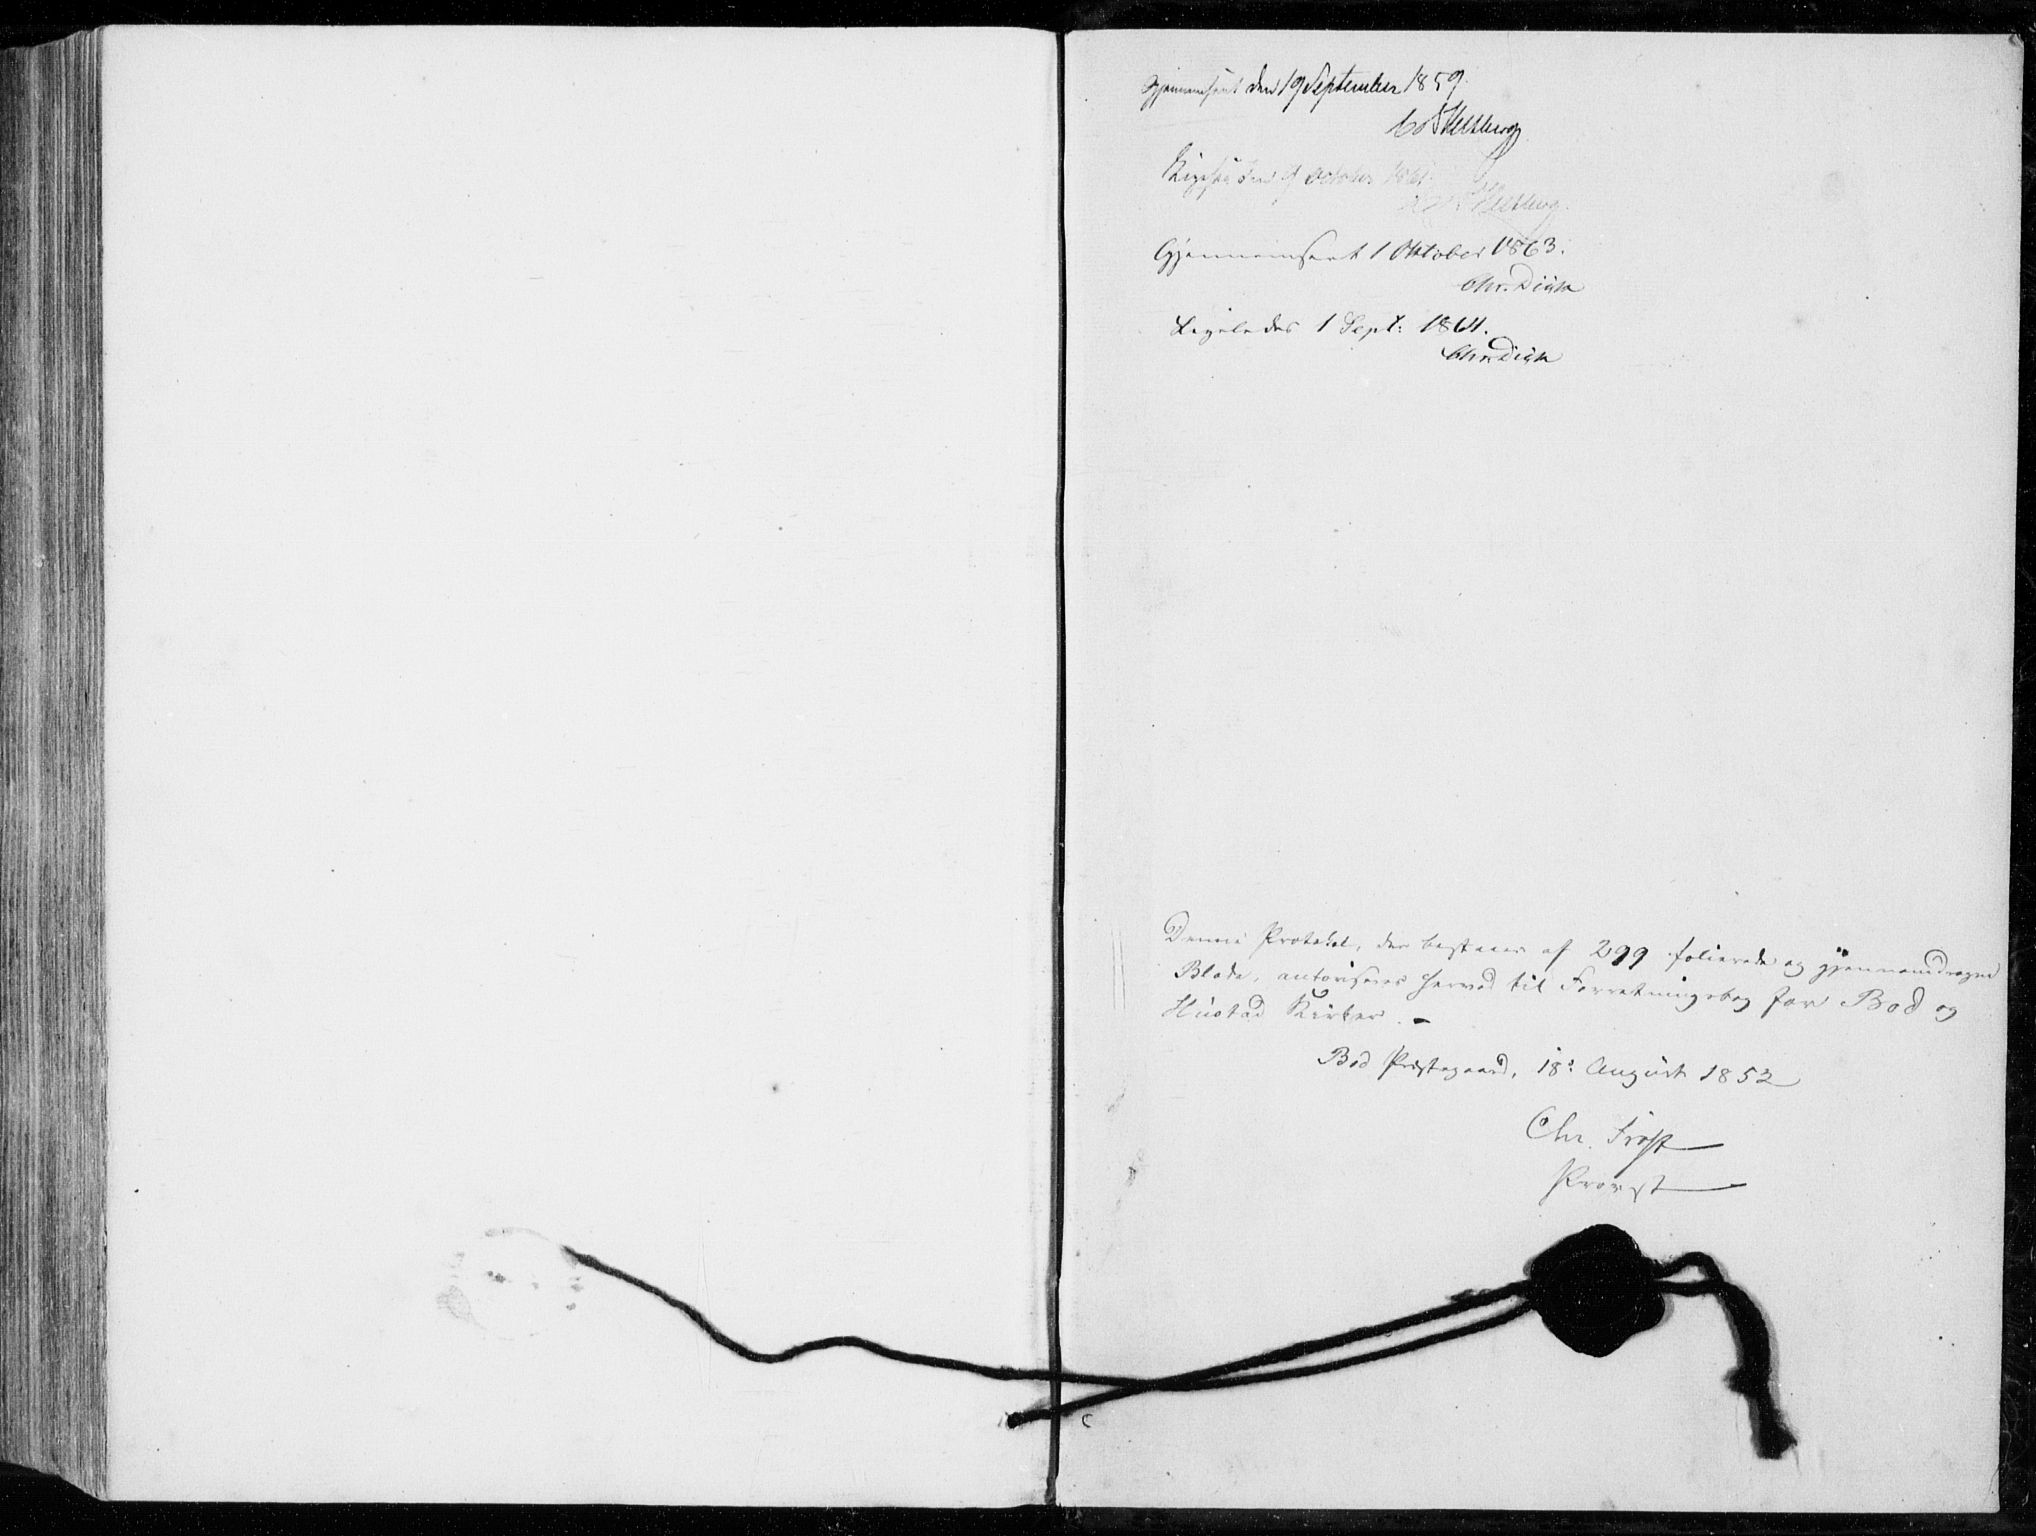 Gjennemseet den 19 September 1859.
Heltberg
Ligesaa den 9 October 1861.
Heltberg.
Gjennemseet 1 Oktober 1863.
Chr. Diise
Ligeledes 1 Sept: 1864.
Chr. Diise
Denne Protokol, der bestaaer af 299 folierede og gjennemdragne
Blade, autoriseres herved til Forretningsbog for Bod og
Hustad Kirker. –
Bod Præstegaard, 18: August 1852
Chr. Frost
Provst